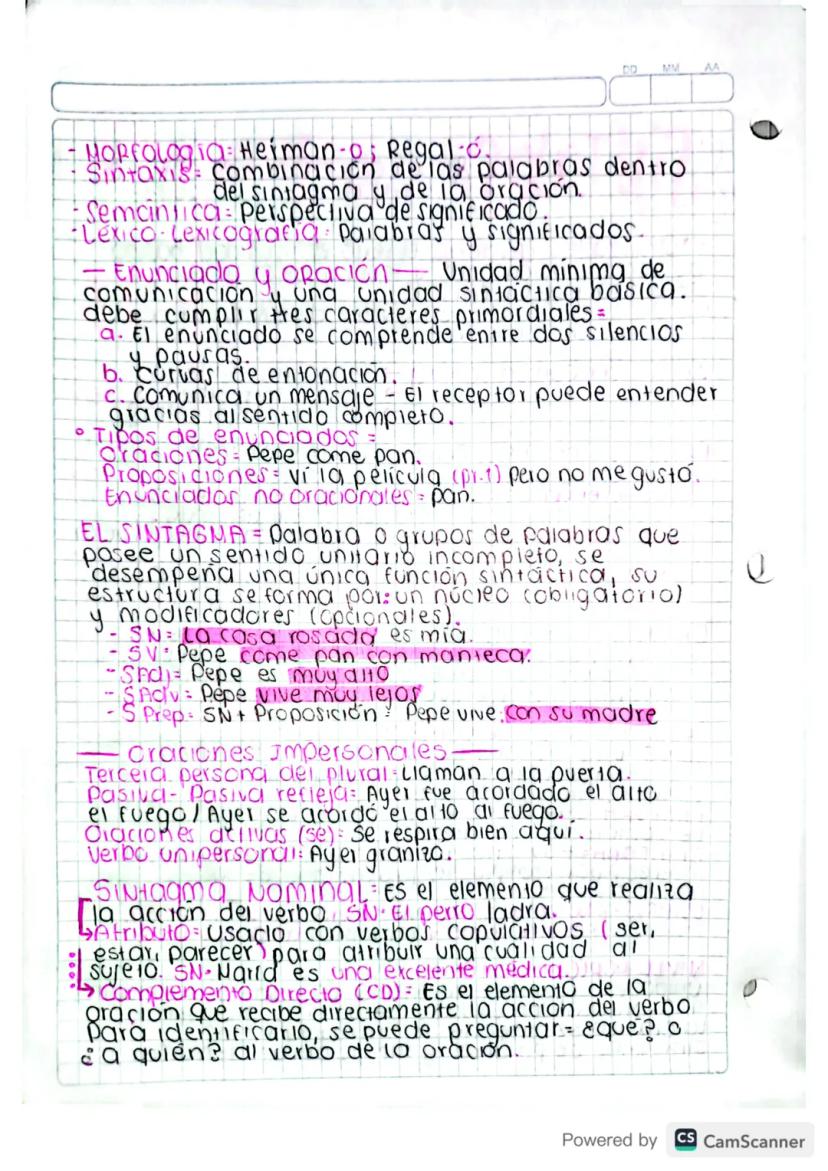 DD MM AA
- Morfología = Herman-o ; Regal-ó.
- Sintaxis = Combinación de las palabras dentro
del sintagma y de la oración.
- Semántica = Perspectiva de significado.
- Léxico-Lexicografía = Palabras y significados.
— Enunciado y oración — Unidad mínima de
comunicación y una unidad sintáctica básica.
debe cumplir tres caracteres primordiales =
a. El enunciado se comprende entre dos silencios
y pausas.
b. Curvas de entonación.
c. Comunica un mensaje - El receptor puede entender
gracias al sentido completo.
° Tipos de enunciados =
Oraciones = Pepe come pan.
Proposiciones = Vi la película (pr.1) pero no me gustó.
Enunciados no oracionales = pan.
EL SINTAGMA = Palabra o grupos de palabras que
posee un sentido unitario incompleto, se
desempeña una única función sintáctica, su
estructura se forma por: un núcleo (obligatorio)
y modificadores (opcionales).
- SN = La casa rosada es mía.
- SV = Pepe come pan con manteca.
- SAdj = Pepe es muy alto
- SAdv = Pepe vive muy lejos
- S Prep = SN + Proposición = Pepe vive con su madre
— Oraciones Impersonales —
Tercera persona del plural = Llaman a la puerta.
Pasiva - Pasiva refleja = Ayer fue acordado el alto
el fuego / Ayer se acordó el alto al fuego.
Oraciones activas (se) = Se respira bien aquí.
Verbo unipersonal = Ayer granizo.
Sintagma Nominal = Es el elemento que realiza
la acción del verbo. SN = El perro ladra.
→ Atributo = Usado con verbos copulativos (ser,
estar, parecer) para atribuir una cualidad al
sujeto. SN = María es una excelente médica.
→ Complemento Directo (CD) = Es el elemento de la
oración que recibe directamente la acción del verbo
Para identificarlo, se puede preguntar = ¿que? o
¿a quién? al verbo de la oración.
Powered by CS CamScanner